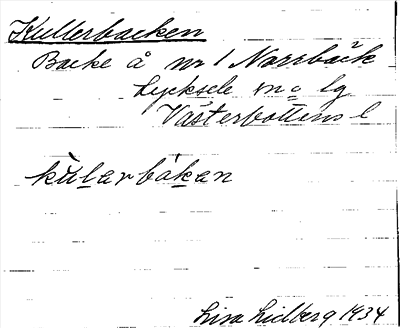 Kullerbacken
Backe å nr 1 Norrbäck
Lycksele sn o lg
Västerbottens l
kùlarbákan
Lisa Lidberg 1934